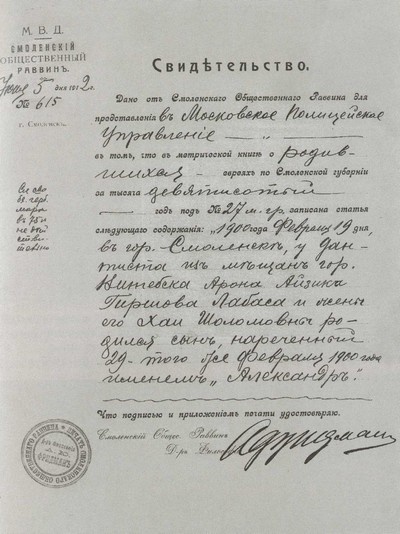 М. В. Д.
СМОЛЕНСКІЙ
ОБЩЕСТВЕННЫЙ
РАВВИНЪ.
Іюня 5 дня 1912 г.
№ 615
г. Смоленскъ.
Свидѣтельство.
Дано отъ Смоленскаго Общественнаго Раввина для
представленія въ Московское Полицейское
Управленіе — „ —
въ томъ, что въ метрической книгѣ о родив-
шихся евреяхъ по Смоленской губерніи
за тысяча девятисотый
годъ подъ № 27 м. гр. записана статья
слѣдующаго содержанія: „1900 года Февраля 19 дня,
въ гор. Смоленскѣ, у дан-
тиста изъ мѣщанъ гор.
Витебска Арона Айзика
Гиршова Лабаса и жены
его Хаи Шоломовны ро-
дился сынъ, нареченный
29-того же Февраля 1900 года
именемъ „Александръ".
Что подписью и приложеніемъ печати удостовѣряю.
Смоленскій Общес. Раввинъ
Д-ръ Филос.
Фридманъ
ПЕЧАТЬ СМОЛЕНСКАГО ОБЩЕСТВЕННАГО РАВВИНА
ФРИДМАНЪ